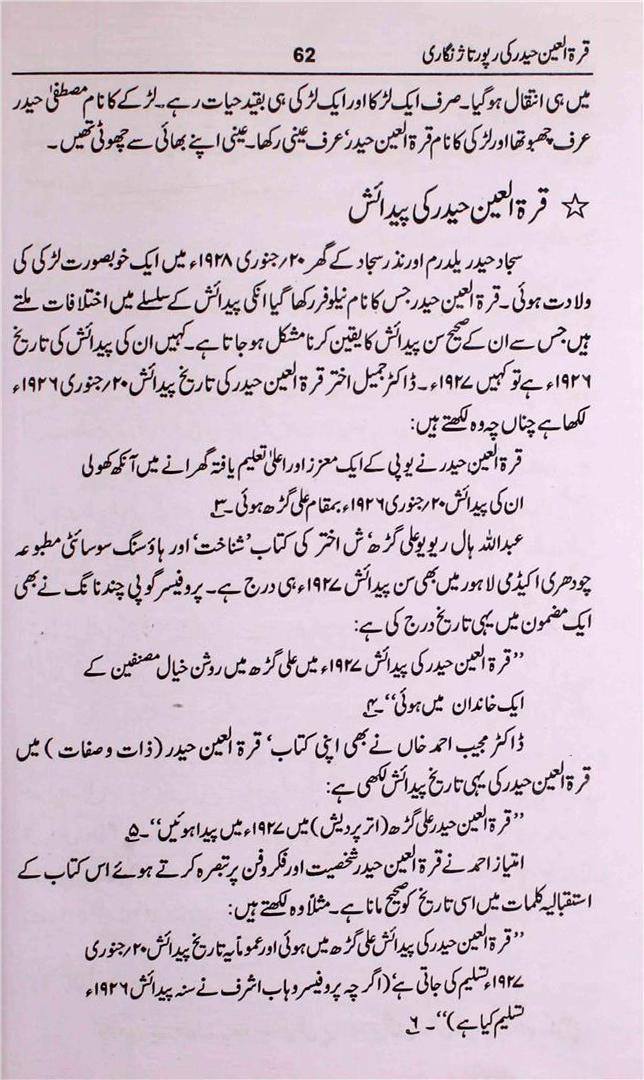 قرۃ العین حیدر کی رپورتاژ نگاری 62
میں ہی انتقال ہو گیا۔ صرف ایک لڑکا اور ایک لڑکی ہی بقید حیات رہے۔ لڑکے کا نام مصطفیٰ حیدر
عرف چھبو تھا اور لڑکی کا نام قرۃ العین حیدر' عرف عینی رکھا۔ عینی اپنے بھائی سے چھوٹی تھیں۔
☆ قرۃ العین حیدر کی پیدائش
سجاد حیدر یلدرم اور نذر سجاد کے گھر ۲۰؍جنوری ۱۹۲۸ء میں ایک خوبصورت لڑکی کی
ولادت ہوئی۔ قرۃ العین حیدر جس کا نام نیلوفر رکھا گیا انکی پیدائش کے سلسلے میں اختلافات ملتے
ہیں جس سے ان کے صحیح سن پیدائش کا یقین کرنا مشکل ہو جاتا ہے۔ کہیں ان کی پیدائش کی تاریخ
۱۹۲۶ء ہے تو کہیں ۱۹۲۷ء۔ ڈاکٹر جمیل اختر قرۃ العین حیدر کی تاریخ پیدائش ۲۰؍جنوری ۱۹۲۶ء
لکھا ہے چناں چہ وہ لکھتے ہیں:
قرۃ العین حیدر نے یوپی کے ایک معزز اور اعلیٰ تعلیم یافتہ گھرانے میں آنکھ کھولی
ان کی پیدائش ۲۰؍جنوری ۱۹۲۶ء بمقام علی گڑھ ہوئی۔۳
عبداللہ ہال ریویو علی گڑھ' ش اختر کی کتاب 'شناخت' اور ہاؤسنگ سوسائٹی مطبوعہ
چودھری اکیڈمی لاہور میں بھی سن پیدائش ۱۹۲۷ء ہی درج ہے۔ پروفیسر گوپی چند نانگ نے بھی
ایک مضمون میں یہی تاریخ درج کی ہے:
"قرۃ العین حیدر کی پیدائش ۱۹۲۷ء میں علی گڑھ میں روشن خیال مصنفین کے
ایک خاندان میں ہوئی"۔۴
ڈاکٹر مجیب احمد خاں نے بھی اپنی کتاب' قرۃ العین حیدر (ذات و صفات) میں
قرۃ العین حیدر کی یہی تاریخ پیدائش لکھی ہے:
"قرۃ العین حیدر علی گڑھ (اتر پردیش) میں ۱۹۲۷ء میں پیدا ہوئیں"۔۵
امتیاز احمد نے قرۃ العین حیدر شخصیت اور فکر و فن پر تبصرہ کرتے ہوئے اس کتاب کے
استقبالیہ کلمات میں اسی تاریخ کو صحیح مانا ہے۔ مثلاً وہ لکھتے ہیں:
"قرۃ العین حیدر کی پیدائش علی گڑھ میں ہوئی اور عموماً یہ تاریخ پیدائش ۲۰؍جنوری
۱۹۲۷ء تسلیم کی جاتی ہے' (اگر چہ پروفیسر وہاب اشرف نے سنہ پیدائش ۱۹۲۶ء
تسلیم کیا ہے)"۔ ۶